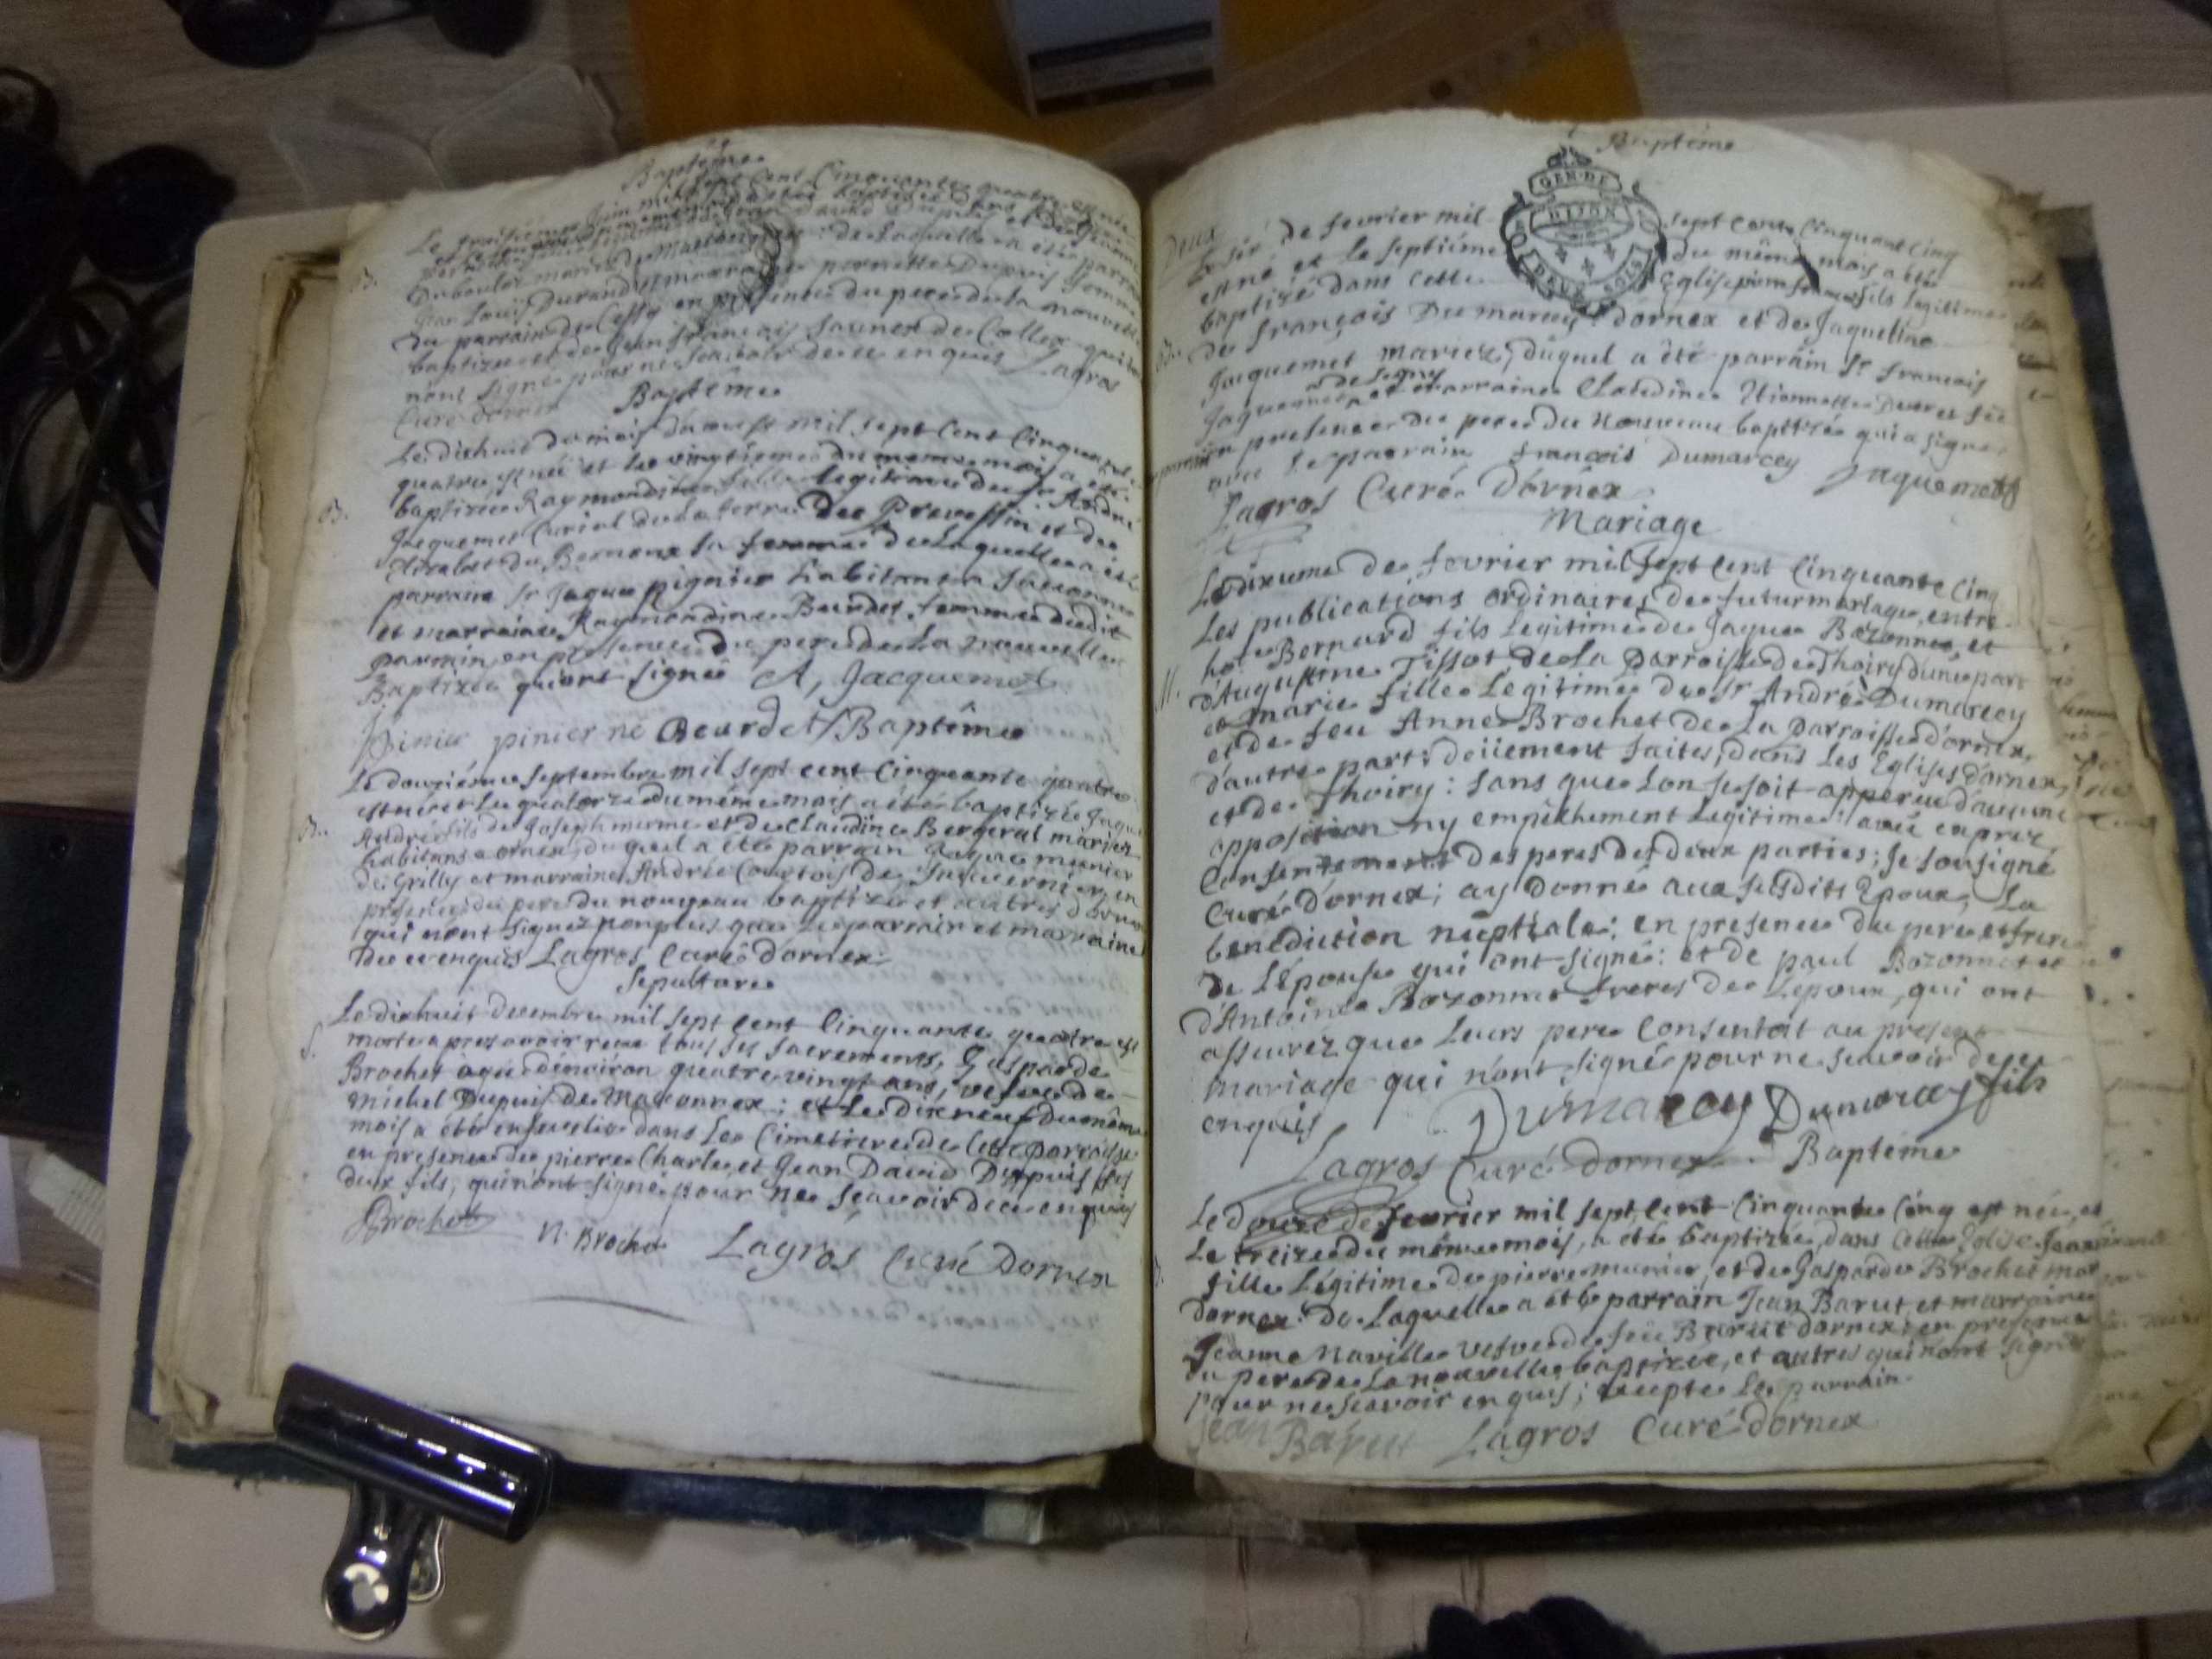 Baptême
Le troisième juin mil sept cent cinquante quatre est née
et le
Dubouloz mariez de : de laquelle a été parrain
Jean Louis Durand et marraine pernette Dupuis femme
du parrain de Cessy en présence du pere de la nouvelle
baptizée et de Jean francois saunex de Collex qui
nont signé pour ne scavoir de ce enquis Lagros
Curé dornex
Baptême
B.
Le dixhuit du mois mil sept cent cinquante
quatre est née et le vingtième du meme mois a été
baptizée Raymondine fille legitime du sr André
Jacquemet Curial de la terre de Prevessin et de
du Bernoux sa femme de laquelle a été
parrain sr Jaque pignier habitant a
et marraine Raymondine Beurdet femme dudit
parrain, en présence du pere de la nouvelle
Baptizée qui ont signé A, Jacquemet
pinier né Beurdet Baptême
B.
Le douzième septembre mil sept cent cinquante quatre
est né et le quatorze du même mois a été baptizé Jaque
André fils de Joseph murme et de Claudine Bergeral mariez
habitans a ornex, duquel a été parrain Jaque munier
de Grilly et marraine Andrée Courtois de en
présence du pere du nouveau baptizé et autres dornex
qui nont signez non plus que le parrain et marraine
de ce enquis Lagros Curé dornex
Sepulture
S.
Le dixhuit decembre mil sept cent cinquante quatre est
morte apres avoir receu tous ses sacrements, Gasparde
Brochet agée denviron quatre vingt ans, vefve de
michel Dupuis de Maconnex : et le dix neuf du même
mois a été ensevelie dans le Cimetiere de cette parroisse
en presence de pierre Charle et Jean David Dupuis ses
deux fils, qui nont signé pour ne scavoir de ce enquis
Brochet N. Brochet Lagros Curé Dornex
Baptême
GEN. DE
DIJON
DEUX SOLS
Deux
Le six de fevrier mil sept cent cinquant cinq
est né et le septième du même mois a été
baptizé dans cette Eglise pierre francois fils legitime
de françois Dumarcey dornex et de Jaqueline
Jaquemet mariez, duquel a été parrain Sr francois
Jaquemet de segny et marraine Claudine Etiennette
en presence du pere du nouveau baptizé qui a signé
avec le parrain francois Dumarcey Jaquemet
Lagros Curé Dornex
Mariage
M.
Le dixieme de fevrier mil sept cent cinquante cinq
Les publications ordinaires de futur mariage entre
hote Bernard fils legitime de Jaque Bozonnet, et
d'Augustine Tissot de la parroisse de Thoiry d'une part
et marie fille legitime du sr André Dumarcey
et de feu Anne Brochet de la parroisse dornex
d'autre part deüement faites, dans les Eglises dornex,
et de Thoiry : sans que lon se soit apperceu daucune
opposition ny empêchement legitime : avec exprez
consentement des peres des deux parties ; Je sousigné
Curé Dornex ; ay donné aux susdits Epoux, la
benediction nuptiale ; en presence du pere et frere
de l'épouse qui ont signé : et de paul Bozonnet et
d'Antoine Bozonnet freres de lepoux, qui ont
asseurez que leurs pere consentoit au present
mariage qui n'ont signé pour ne scavoir de ce
enquis Dumarcey Dumarcey fils
Lagros Curé dornex
Baptême
Le douze de fevrier mil sept cent cinquante cinq est née, et
Le treize du même mois, a été baptizée, dans cette Eglise Jeanne
fille légitime de pierre munier, et de Gasparde Brochet mariez
dornex. De laquelle a été parrain Jean Barut, et marraine
Jeanne Naville vefve de feü Barut dornex ; en presence
du pere de la nouvelle baptizée, et autres qui nont signé
pour ne scavoir enquis ; excepté le parrain.
Jean Barut Lagros Curé dornex